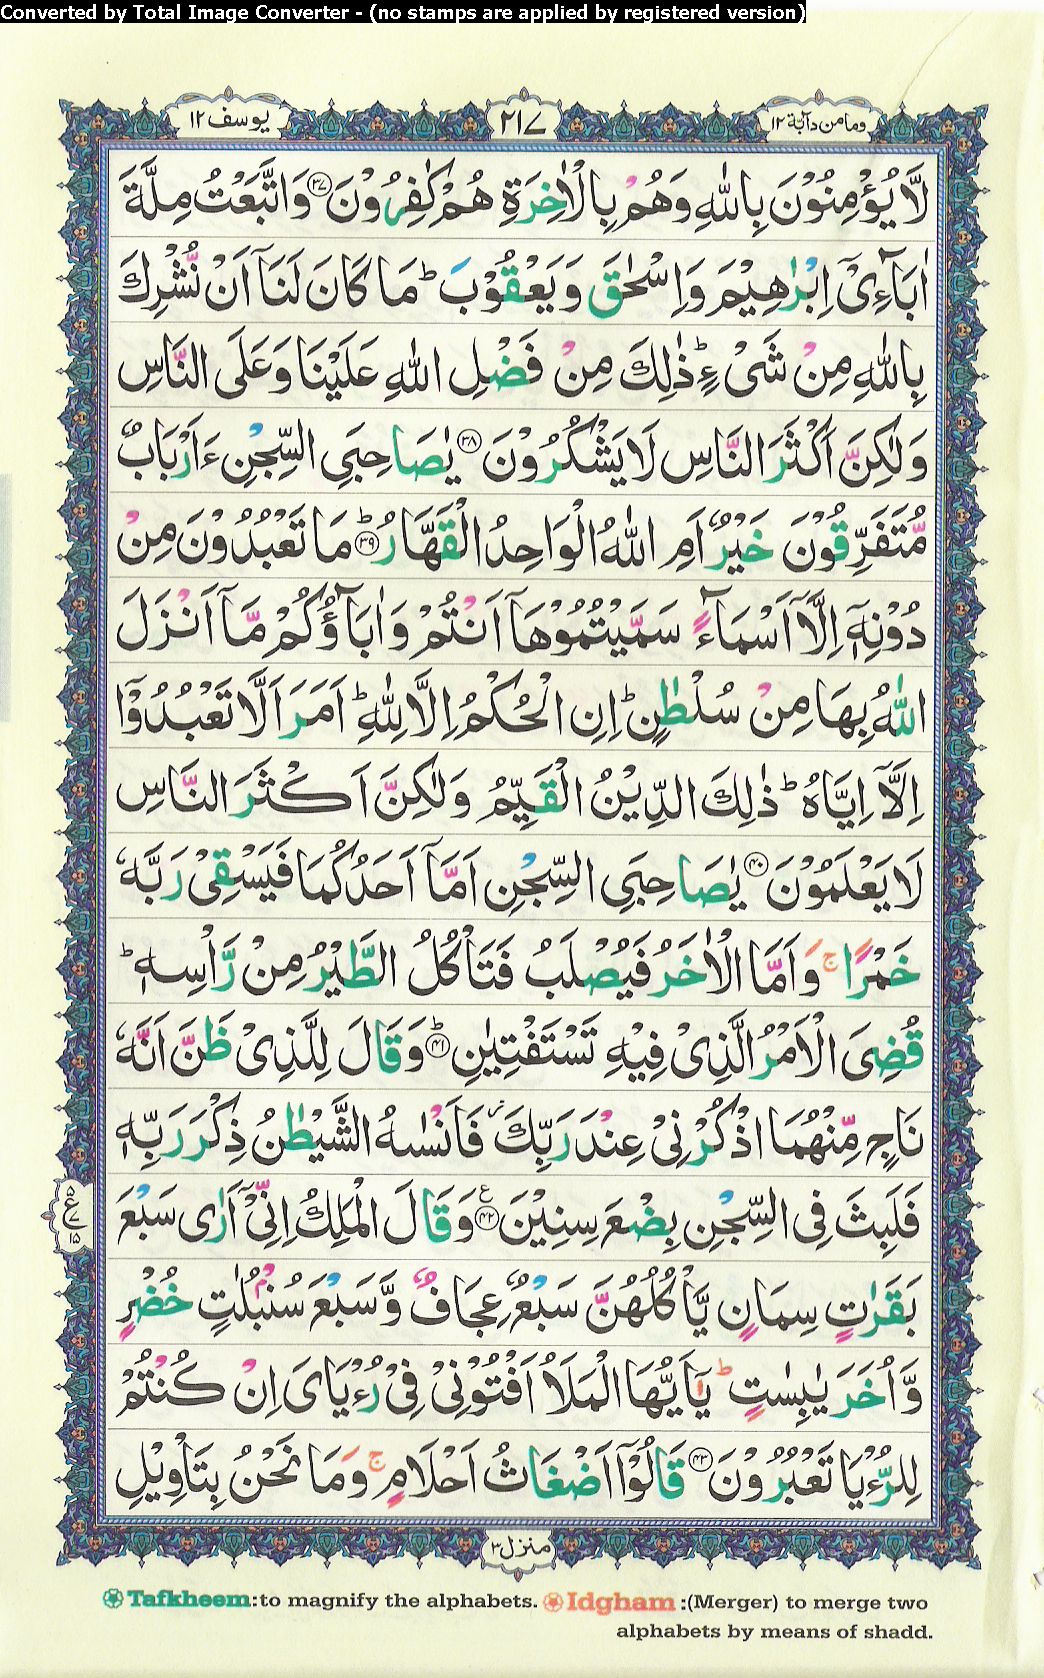 Converted by Total Image Converter - (no stamps are applied by registered version)
وما من دآبة ۱۲
۲۱۷
یوسف ۱۲
لَّا یُؤْمِنُوْنَ بِاللّٰهِ وَهُمْ بِالْاٰخِرَةِ هُمْ كٰفِرُوْنَ ۝۳۷ وَاتَّبَعْتُ مِلَّةَ
اٰبَآءِیْۤ اِبْرٰهِیْمَ وَاِسْحٰقَ وَیَعْقُوْبَ ؕ مَا كَانَ لَنَاۤ اَنْ نُّشْرِكَ
بِاللّٰهِ مِنْ شَیْءٍ ؕ ذٰلِكَ مِنْ فَضْلِ اللّٰهِ عَلَیْنَا وَعَلَی النَّاسِ
وَلٰكِنَّ اَكْثَرَ النَّاسِ لَا یَشْكُرُوْنَ ۝۳۸ یٰصَاحِبَیِ السِّجْنِ ءَاَرْبَابٌ
مُّتَفَرِّقُوْنَ خَیْرٌ اَمِ اللّٰهُ الْوَاحِدُ الْقَهَّارُ ۝۳۹ؕ مَا تَعْبُدُوْنَ مِنْ
دُوْنِهٖۤ اِلَّاۤ اَسْمَآءً سَمَّیْتُمُوْهَاۤ اَنْتُمْ وَاٰبَآؤُكُمْ مَّاۤ اَنْزَلَ
اللّٰهُ بِهَا مِنْ سُلْطٰنٍ ؕ اِنِ الْحُكْمُ اِلَّا لِلّٰهِ ؕ اَمَرَ اَلَّا تَعْبُدُوْۤا
اِلَّاۤ اِیَّاهُ ؕ ذٰلِكَ الدِّیْنُ الْقَیِّمُ وَلٰكِنَّ اَكْثَرَ النَّاسِ
لَا یَعْلَمُوْنَ ۝۴۰ یٰصَاحِبَیِ السِّجْنِ اَمَّاۤ اَحَدُكُمَا فَیَسْقِیْ رَبَّهٗ
خَمْرًا ۚ وَاَمَّا الْاٰخَرُ فَیُصْلَبُ فَتَاْكُلُ الطَّیْرُ مِنْ رَّاْسِهٖ ؕ
قُضِیَ الْاَمْرُ الَّذِیْ فِیْهِ تَسْتَفْتِیٰنِ ۝۴۱ؕ وَقَالَ لِلَّذِیْ ظَنَّ اَنَّهٗ
نَاجٍ مِّنْهُمَا اذْكُرْنِیْ عِنْدَ رَبِّكَ ؗ فَاَنْسٰىهُ الشَّیْطٰنُ ذِكْرَ رَبِّهٖ
فَلَبِثَ فِی السِّجْنِ بِضْعَ سِنِیْنَ ۝۴۲ع وَقَالَ الْمَلِكُ اِنِّیْۤ اَرٰی سَبْعَ
۵ ع ۷ ۱۵
بَقَرٰتٍ سِمَانٍ یَّاْكُلُهُنَّ سَبْعٌ عِجَافٌ وَّسَبْعَ سُنْۢبُلٰتٍ خُضْرٍ
وَّاُخَرَ یٰبِسٰتٍ ؕ یٰۤاَیُّهَا الْمَلَاُ اَفْتُوْنِیْ فِیْ رُءْیَایَ اِنْ كُنْتُمْ
لِلرُّءْیَا تَعْبُرُوْنَ ۝۴۳ قَالُوْۤا اَضْغَاثُ اَحْلَامٍ ۚ وَمَا نَحْنُ بِتَاْوِیْلِ
منزل ۳
Tafkheem:to magnify the alphabets. Idgham :(Merger) to merge two
alphabets by means of shadd.